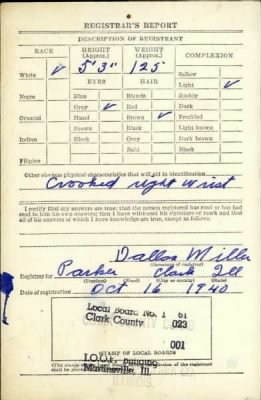 REGISTRAR'S REPORT
DESCRIPTION OF REGISTRANT
RACE HEIGHT (Approx.) WEIGHT (Approx.) COMPLEXION
5' 3" 125
White ✓ EYES HAIR Sallow
Light ✓
Negro Blue Blonde Ruddy
Gray ✓ Red Dark
Oriental Hazel Brown ✓ Freckled
Brown Black Light brown
Indian Black Gray Dark brown
Bald Black
Filipino
Other obvious physical characteristics that will aid in identification
Crooked right wrist
I certify that my answers are true; that the person registered has read or has had
read to him his own answers; that I have witnessed his signature or mark and that
all of his answers of which I have knowledge are true, except as follows:
Dallas Miller
(Signature of registrar)
Registrar for Parker Clark Ill
(Precinct) (Ward) (City or county) (State)
Date of registration Oct 16 1940
Local Board No. 1 61
Clark County 023
001
(STAMP OF LOCAL BOARD)
I.O.O.F. Building
Martinsville, Ill.